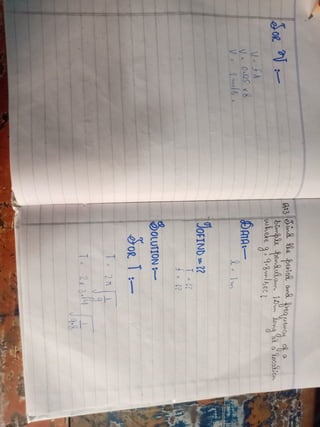 FOR V :—
V = fλ
V = 0.025 x 8
V =
Q:3 Find the period and frequency of a
simple pendulum 1.0m long at a location
where g = 9.8 m/sec² ?
DATA:—
l = 1m
TO FIND = ??
T = ??
f = ??
SOLUTION:—
FOR T :—
T = 2π √l/g
T = 2 x 3.14 √1/9.8